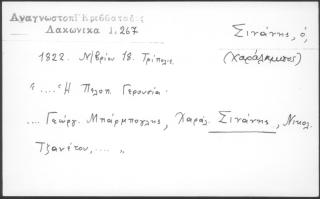 Αναγνωστοπ. Κρεββατάς
Λακωνικα 1,267
Σινάνης, ὁ,
(Χαράλαμπος)
1822. Ν/βρίου 18. Τριπολις.
"....Ἡ Πελοπ. Γερουσία.
.... Γεώργ. Μπάρμπογλης, Χαράλ. Σινάνης, Νικολ.
Τζανέτου,.... "